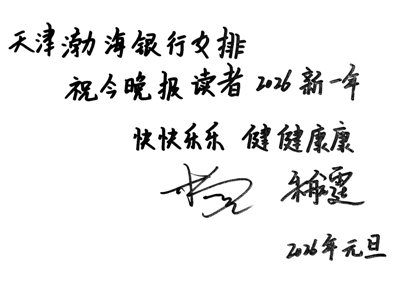 天津渤海银行女排
祝今晚报读者2026新一年
快快乐乐 健健康康
2026年元旦